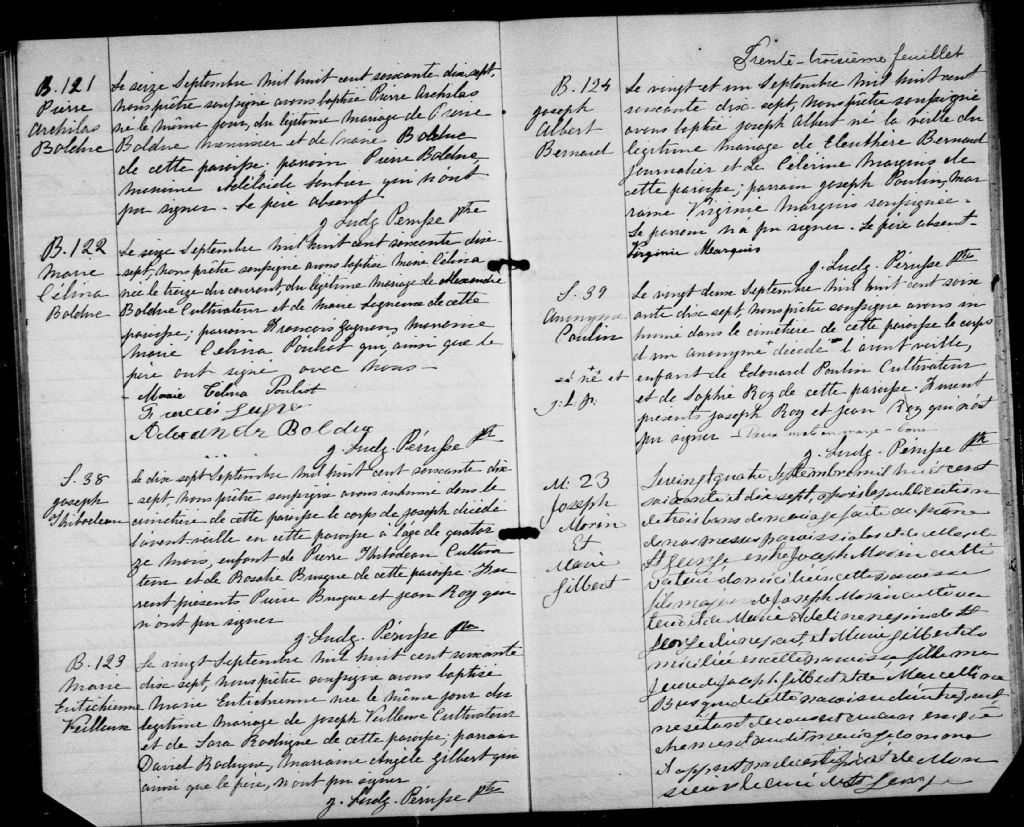 B. 121
Pierre
Archilas
Bolduc
Le seize Septembre mil huit cent soixante dix sept,
nous prêtre soussigné avons baptisé Pierre Archilas
né le même jour, du légitime mariage de Pierre
Bolduc menuisier et de Marie Bolduc
de cette paroisse; parrain Pierre Bolduc
marraine Adélaïde qui n'ont
pu signer. Le père absent
J. Ludg. Pérusse Ptre
B. 122
Marie
Célina
Bolduc
Le seize Septembre mil huit cent soixante dix
sept, nous prêtre soussigné avons baptisé Marie Célina
née le treize du courant, du légitime mariage de Alexandre
Bolduc Cultivateur et de Marie Gagnon de cette
paroisse; parrain François Gagnon, marraine
Marie Célina Pouliot qui, ainsi que le
père ont signé avec nous -
Marie Célina Pouliot
Alexandre Bolduc
J. Ludg. Pérusse Ptr
S. 38
Joseph
Thibodeau
Le dix sept Septembre mil huit cent soixante dix
sept, nous prêtre soussigné avons inhumé dans le
cimetière de cette paroisse le corps de Joseph décédé
l'avant veille en cette paroisse à l'âge de quator
ze mois, enfant de Pierre Thibodeau Cultiva
teur et de Rosalie Busque de cette paroisse. Fu
rent présents Pierre Busque et Jean Roy qui
n'ont pu signer
J. Ludg. Pérusse Ptre
B. 123
Marie
Eutichienne
Veilleux
Le vingt Septembre mil huit cent soixante
dix sept, nous prêtre soussigné avons baptisé
Marie Eutichienne née le même jour du
légitime mariage de Joseph Veilleux Cultivateur
et de Sara Rodrigue de cette paroisse; parrain
David Rodrigue, marraine Angèle Gilbert qui
ainsi que le père, n'ont pu signer
J. Ludg. Pérusse Ptre
Trente-troisième feuillet
B. 124
Joseph
Albert
Bernard
Le vingt et un Septembre mil huit cent
soixante dix sept, nous prêtre soussigné
avons baptisé Joseph Albert né la veille du
légitime mariage de Eleuthère Bernard
journalier et de Célérine Marquis de
cette paroisse; parrain Joseph Poulin, mar
raine Virginie Marquis soussignée.
Le parrain n'a pu signer. Le père absent -
Virginie Marquis
J. Ludg. Pérusse Ptre
S. 39
Anonyme
Poulin
né et
J. L. P.
Le vingt deux Septembre mil huit cent soix
ante dix sept, nous prêtre soussigné avons in
humé dans le cimetière de cette paroisse le corps
d'un anonyme + décédé l'avant veille,
enfant de Edouard Poulin Cultivateur
et de Sophie Roy de cette paroisse. Furent
présents Joseph Roy et Jean Roy qui n'ont
pu signer - Deux mots en marge bons
J. Ludg. Pérusse Ptr
M. 23
Joseph
Morin
Et
Marie
Gilbert
Le vingt quatre Septembre mil huit cent
soixante et dix sept, après la publication
de trois bans de mariage faite au prône
de nos messes paroissiales et de celles de
St George entre Joseph Morin culti
vateur domicilié en cette paroisse
fils majeur de Joseph Morin cultiva
teur et de Marie Adeline Pepin de St
George d'une part, et Marie Gilbert do
miciliée en cette paroisse, fille ma
jeure de Joseph Gilbert et de Marcelline
Busque de cette paroisse d'autre part,
ne s'étant découvert aucun empê
chement au dit mariage comme
il appert par le certificat de Mon
sieur le curé de St George